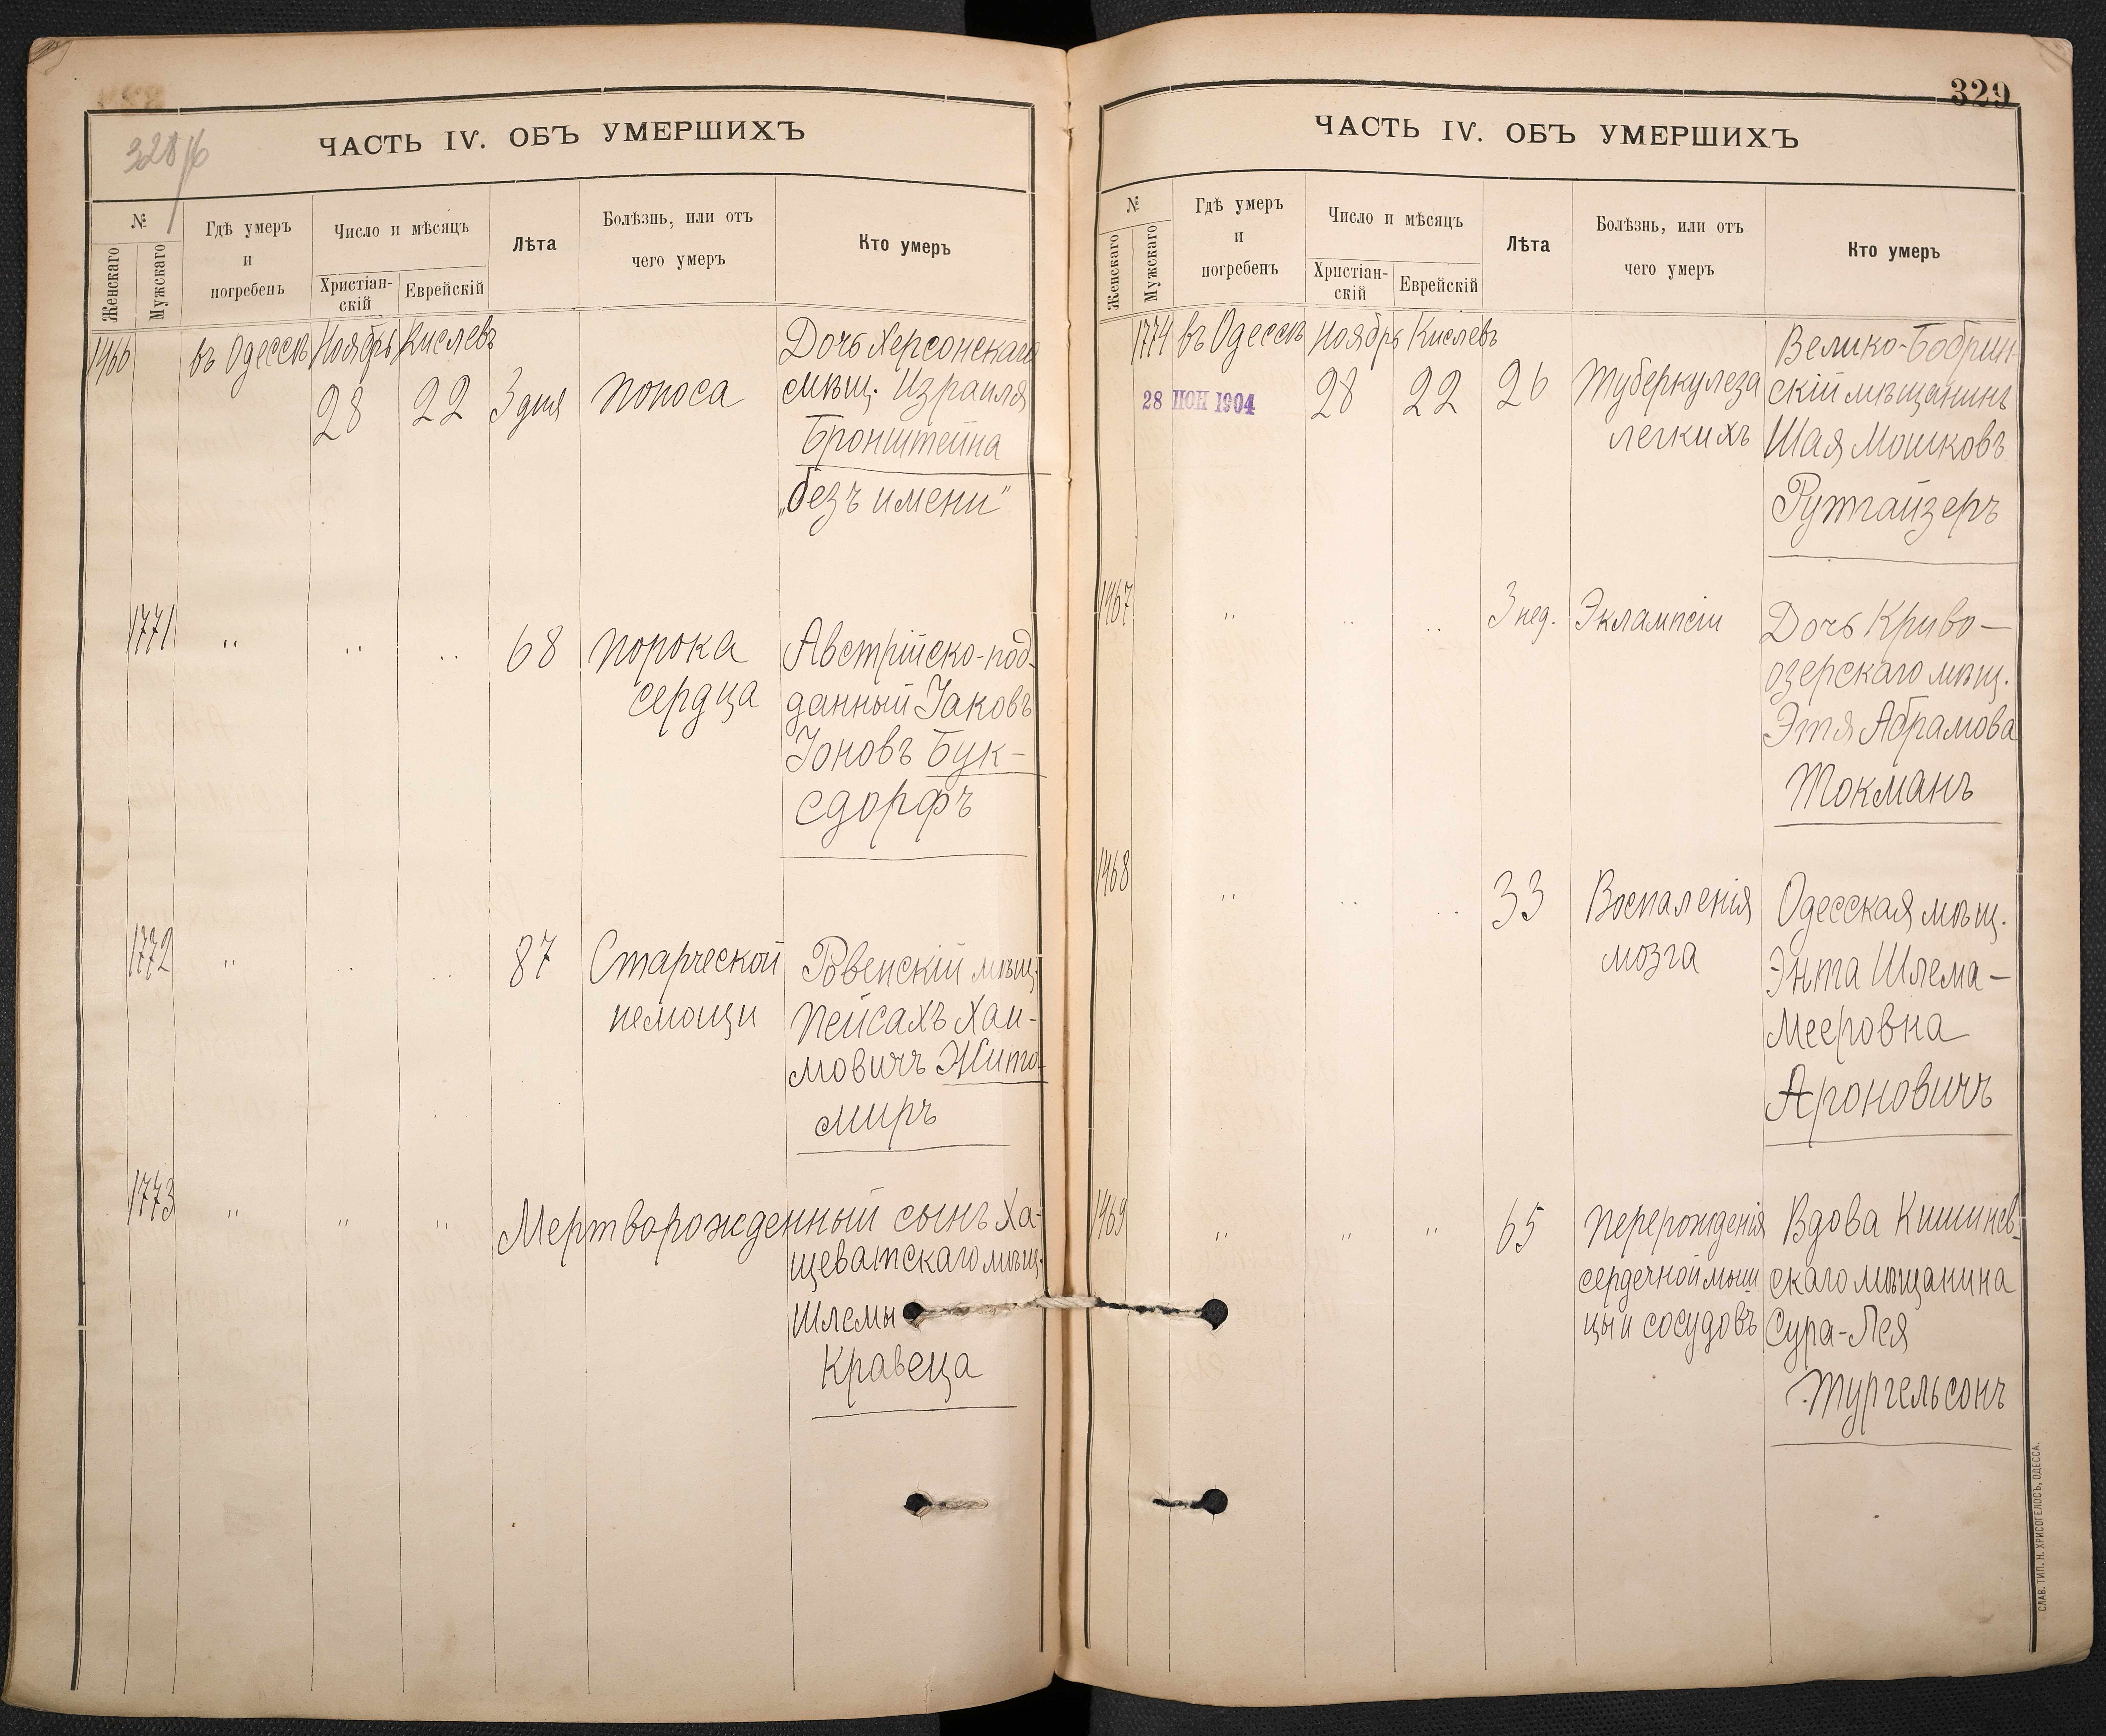 328 об
ЧАСТЬ IV. ОБЪ УМЕРШИХЪ
№
Женскаго
Мужскаго
Гдѣ умеръ
и
погребенъ
Число и мѣсяцъ
Христіан-
скій
Еврейскій
Лѣта
Болѣзнь, или отъ
чего умеръ
Кто умеръ
1466 въ Одессѣ Ноябрь Кислевъ Дочь Херсонскаго
28 22 3 дня поноса мѣщ. Израиля
Бронштейна
„безъ имени"
1771 " " " 68 порока Австрійско-под-
сердца данный Іаковъ
Іоновъ Бук-
сдорфъ
1772 " " " 87 Старческой Ровенскій мѣщ.
немощи Пейсахъ Хаи-
мовичъ Жито-
миръ
1773 " " " Мертворожденный сынъ Ха-
щеватскаго мѣщ.
Шлемы
Кравеца
329
ЧАСТЬ IV. ОБЪ УМЕРШИХЪ
№
Женскаго
Мужскаго
Гдѣ умеръ
и
погребенъ
Число и мѣсяцъ
Христіан-
скій
Еврейскій
Лѣта
Болѣзнь, или отъ
чего умеръ
Кто умеръ
1774 въ Одессѣ Ноябрь Кислевъ Велико-Бобрин-
28 НОЯ 1904 28 22 26 Туберкулеза скій мѣщанинъ
легкихъ Шая Мошковъ
Рутгайзеръ
1467 " " " 3 нед. Эклампсіи Дочь Криво-
озерскаго мѣщ.
Этя Абрамова
Токманъ
1468 " " " 33 Воспаленія Одесская мѣщ.
мозга Энта Шлема-
Мееровна
Ароновичъ
1469 " " " 65 перерожденія Вдова Кишинев-
сердечной мыш скаго мѣщанина
цы и сосудовъ Сура-Лея
Тургельсонъ
СЛАВ. ТИП. Н. ХРИСОГЕЛОСЪ, ОДЕССА.